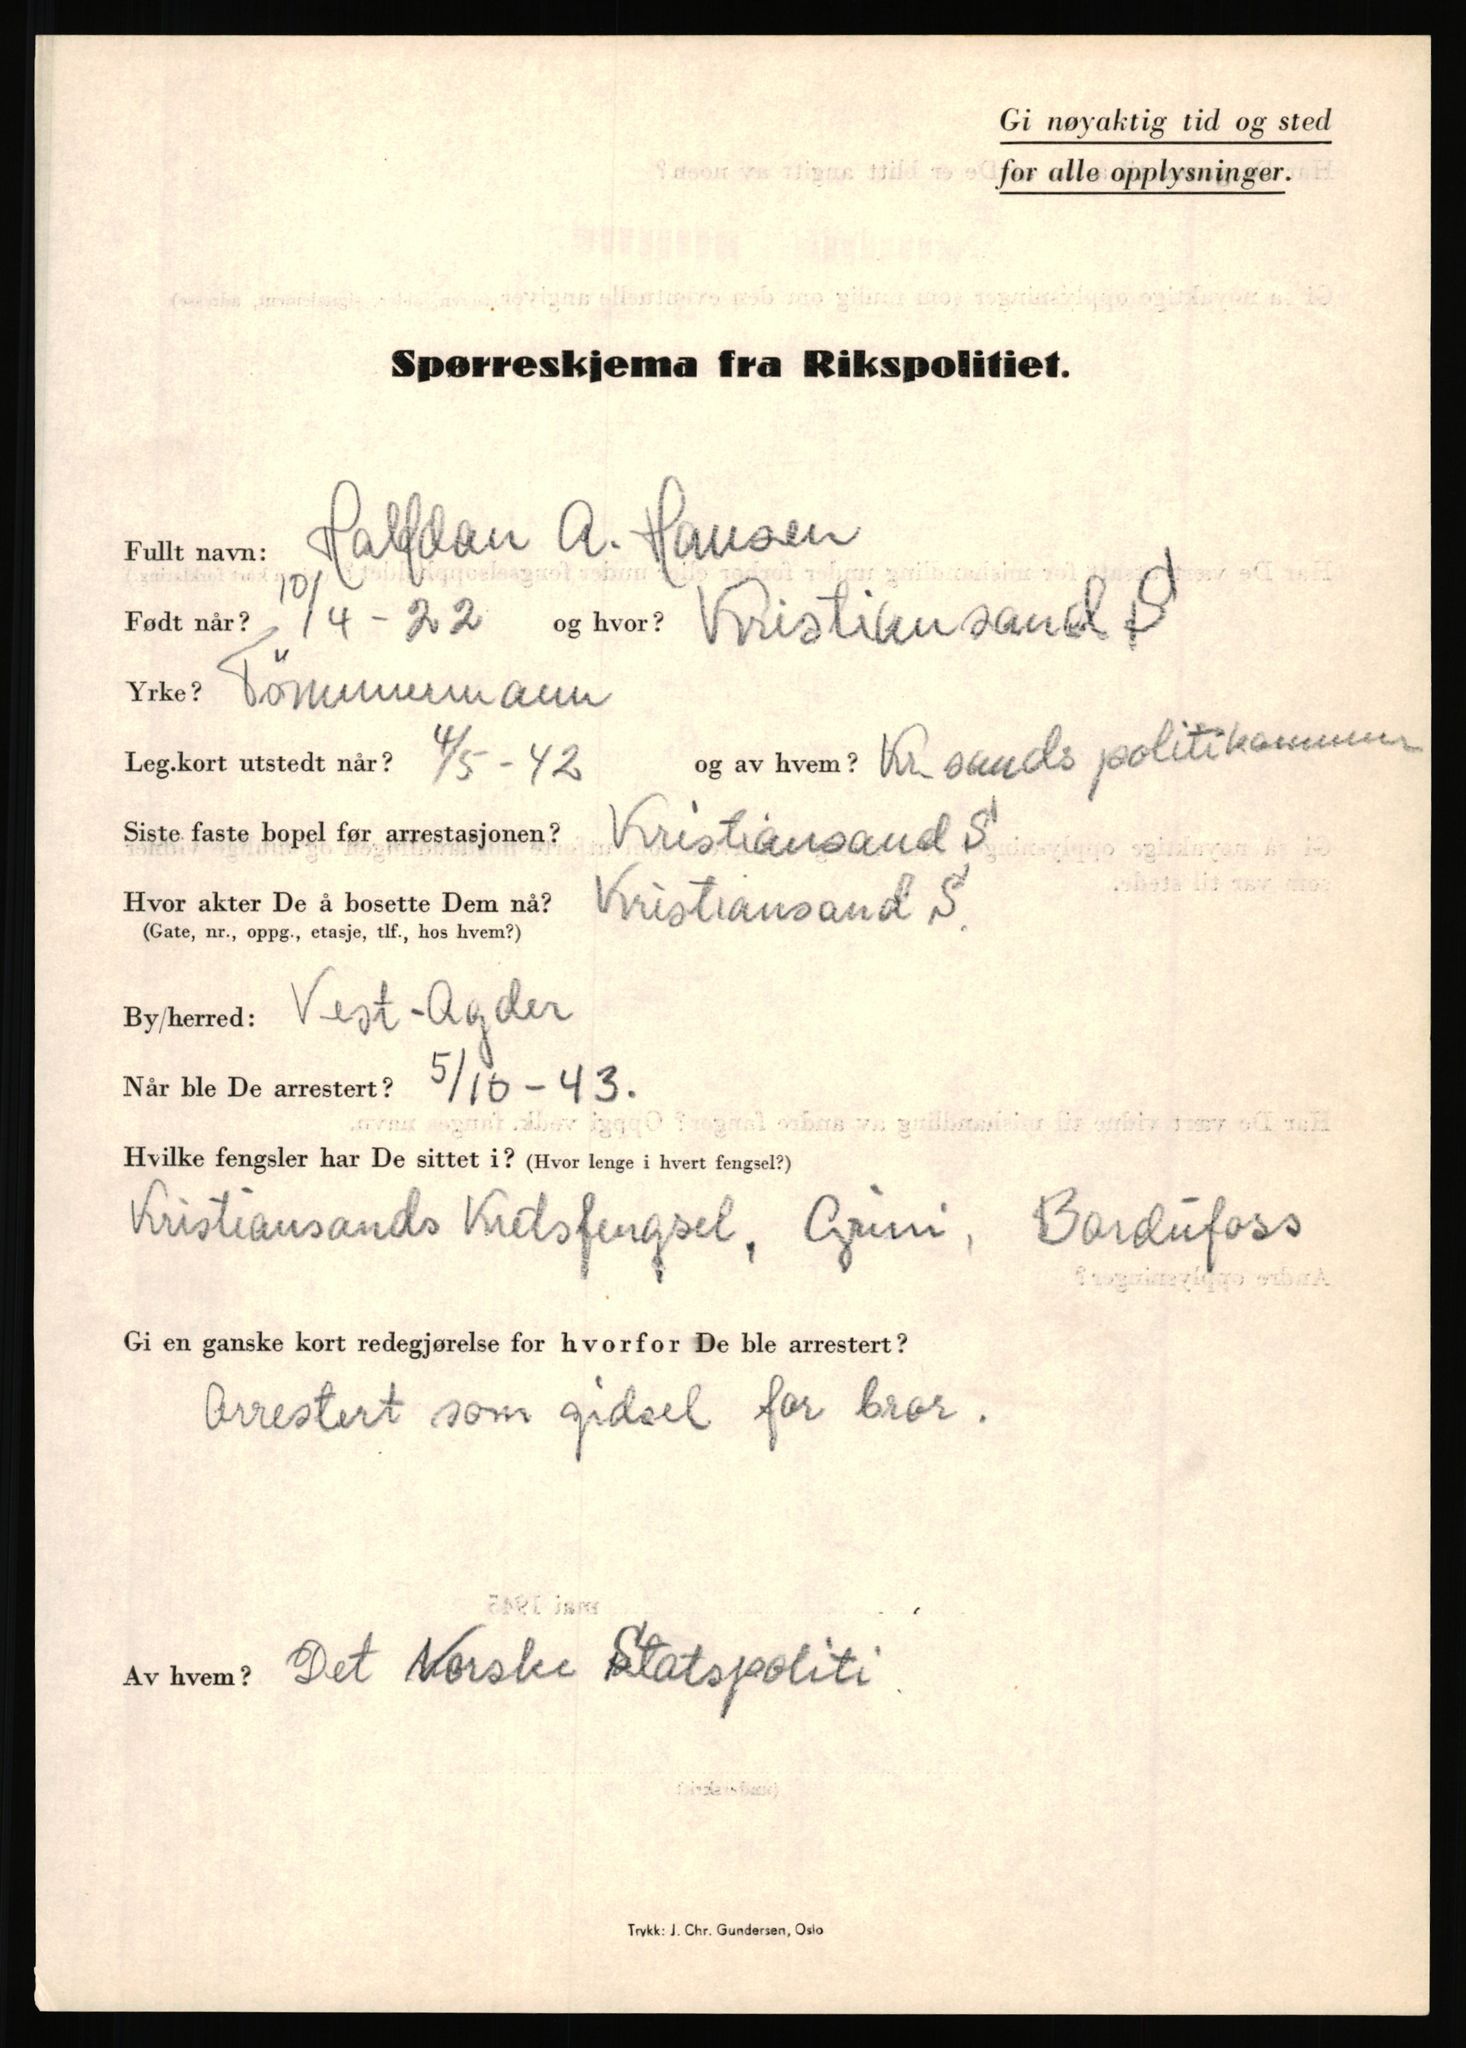 Gi nøyaktig tid og sted
for alle opplysninger.
Spørreskjema fra Rikspolitiet.
Fullt navn: Halfdan A. Hansen
Født når? 10/4-22 og hvor? Kristiansand S
Yrke? Tömmermann
Leg.kort utstedt når? 4/5-42 og av hvem? Kr.sands politikammer
Siste faste bopel før arrestasjonen? Kristiansand S
Hvor akter De å bosette Dem nå? Kristiansand S.
(Gate, nr., oppg., etasje, tlf., hos hvem?)
By/herred: Vest-Agder
Når ble De arrestert? 5/10-43.
Hvilke fengsler har De sittet i? (Hvor lenge i hvert fengsel?)
Kristiansands Kretsfengsel, Grini, Bardufoss
Gi en ganske kort redegjørelse for hvorfor De ble arrestert?
Arrestert som gidsel for bror.
Av hvem? Det Norske Statspoliti
Trykk: J. Chr. Gundersen, Oslo